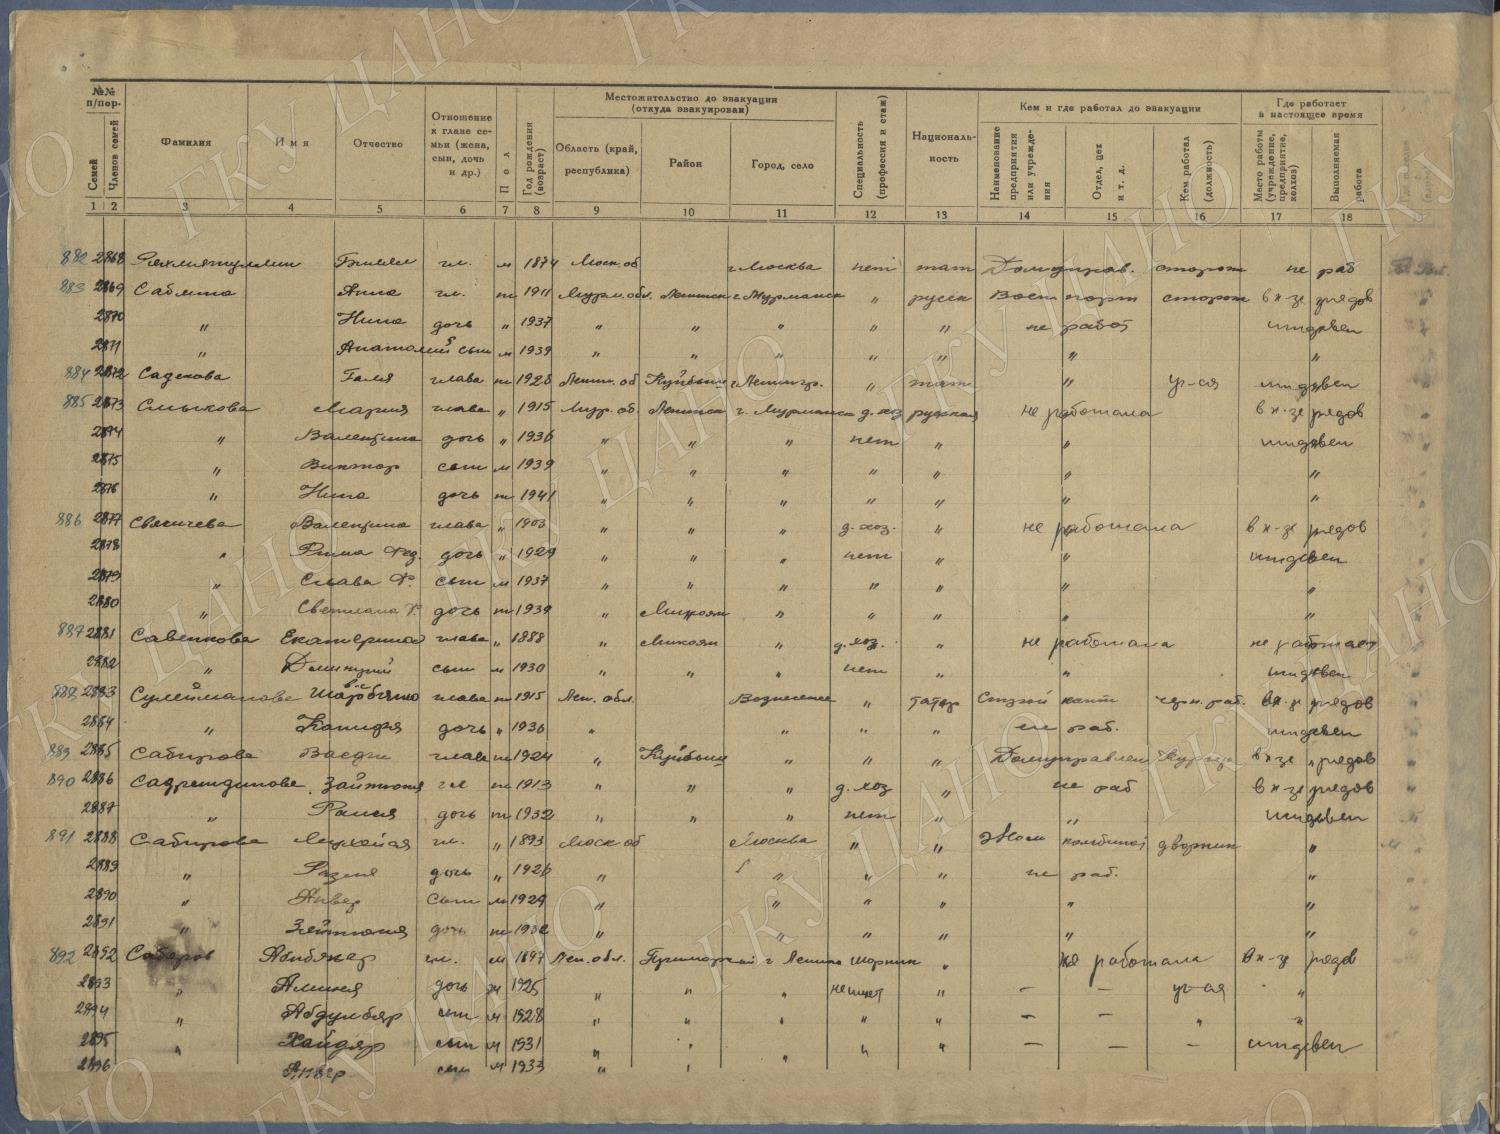 №№ п/пор.
Семей
Членов семей
Фамилия
Имя
Отчество
Отношение к главе семьи (жена, сын, дочь и др.)
Пол
Год рождения (возраст)
Местожительство до эвакуации (откуда эвакуирован)
Область (край, республика)
Район
Город, село
Специальность (профессия и стаж)
Националь-ность
Кем и где работал до эвакуации
Наименование предприятия или учреждения
Отдел, цех и т. д.
Кем работал (должность)
Где работает в настоящее время
Место работы (учреждение, предприятие, колхоз)
Выполняемая работа
1 2 3 4 5 6 7 8 9 10 11 12 13 14 15 16 17 18
882 2868 гл. м 1874 Моск. об г Москва нет тат Домуправ. сторож не раб
883 2869 Саблина Анна гл. ж 1911 Мурм. обл. Ленинск г Мурманск " русск Воен порт сторож в к-зе рядов
2870 " Нина дочь " 1937 " " " " " не работ иждивен
2871 " Анатолий сын м 1939 " " " " " " "
884 2872 Садекова Галя глава ж 1928 Ленин. об Куйбыш г Ленингр. " тат " уч-ся иждивен
885 2873 Смыкова Мария глава " 1915 Мур. об. Ленинск г. Мурманск д. хоз русская не работала в к-зе рядов
2874 " Валентина дочь " 1936 " " " нет " " иждивен
2875 " Виктор сын м 1939 " " " " " " "
2876 " Нина дочь ж 1941 " " " " " " "
886 2877 Валентина глава " 1903 " " " д. хоз. " не работала в к-зе рядов
2878 " Римма Фед. дочь " 1929 " " " нет " " иждивен
2879 " Слава Ф. сын м 1937 " " " " " " "
2880 " Светлана Ф дочь ж 1939 " Микоян " " " " "
887 2881 Савенкова Екатерина глава " 1888 " Микоян " д. хоз. " не работала не работает
2882 " Дмитрий сын м 1930 " " " нет " " иждивен
888 2883 Сулейманова глава ж 1915 Лен. обл. Вознесенье " татар черн. раб. в к-зе рядов
2884 " дочь " 1936 " " " " не раб. иждивен
889 2885 Сабирова глава ж 1924 " Куйбыш " " " Домуправлен Курьер в к-зе рядов
890 2886 гл ж 1913 " " " д. хоз " не раб в к-зе рядов
2887 " Раися дочь ж 1932 " " " нет " " иждивен
891 2888 Сабирова гл. " 1893 Моск об Москва " " комбинат дворник "
2889 " Разия дочь " 1926 " " " " не раб. "
2890 " Анвер сын м 1929 " " " " " "
2891 " дочь ж 1932 " " " " " "
892 2892 Сабиров гл. м 1897 Лен. обл. Приморский г Ленин шорник " не работала в к-зе рядов
2893 " Алимя дочь ж 1925 " " " не имеет " — — уч-ая "
2894 " сын м 1928 " " " " " — — " "
2895 " Хайдяр сын м 1931 " " " " " — — — иждивен
2896 Анвер сын м 1933 " "
ГКУ ЦАНО